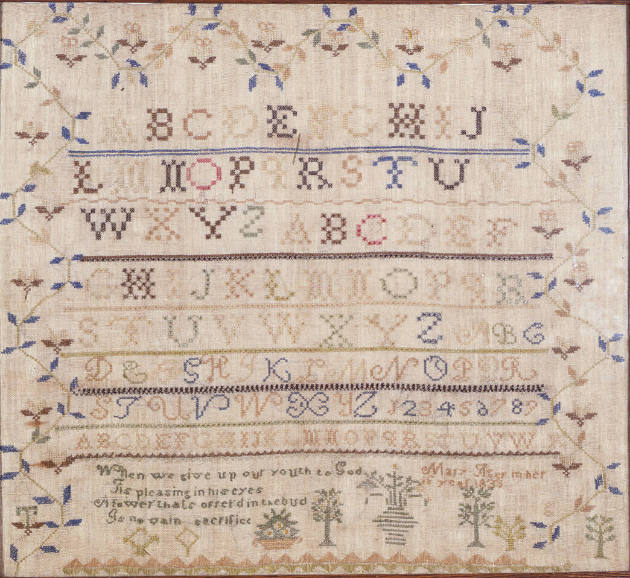 A B C D E F G H I J
L M N O P Q R S T U V
W X Y Z A B C D E F
G H I J K L M N O P Q R
S T U V W X Y Z A B C
D E F G H I K L M N O P Q R
S T U V W X Y Z 1 2 3 4 5 6 7 8 9
A B C D E F G H I J K L M N O P Q R S T U V W X
When we give up our youth to God
Tis pleasing in his eyes
A flower thats offerd in the bud
Is no vain sacrifice
Mary her
year